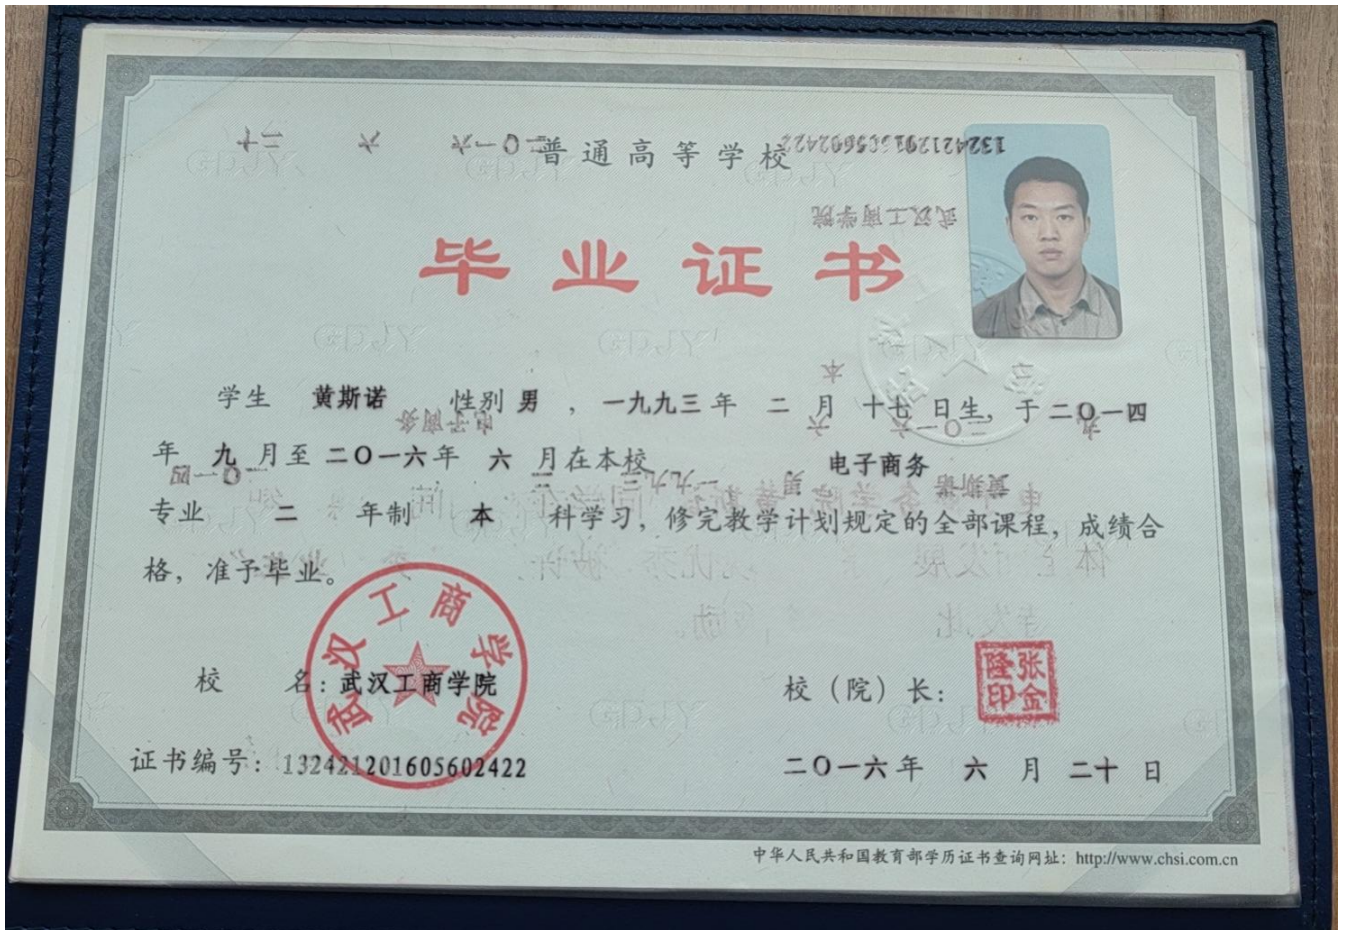 普通高等学校
毕业证书
学生 黄斯诺 性别 男 ，一九九三 年 二 月 十七 日生，于 二〇一四
年 九 月至 二〇一六 年 六 月在本校 电子商务
专业 二 年制 本 科学习，修完教学计划规定的全部课程，成绩合
格，准予毕业。
武汉工商学院
校 名：武汉工商学院
校（院）长：
张金隆印
证书编号：132421201605602422
二〇一六 年 六 月 二十 日
中华人民共和国教育部学历证书查询网址：http://www.chsi.com.cn